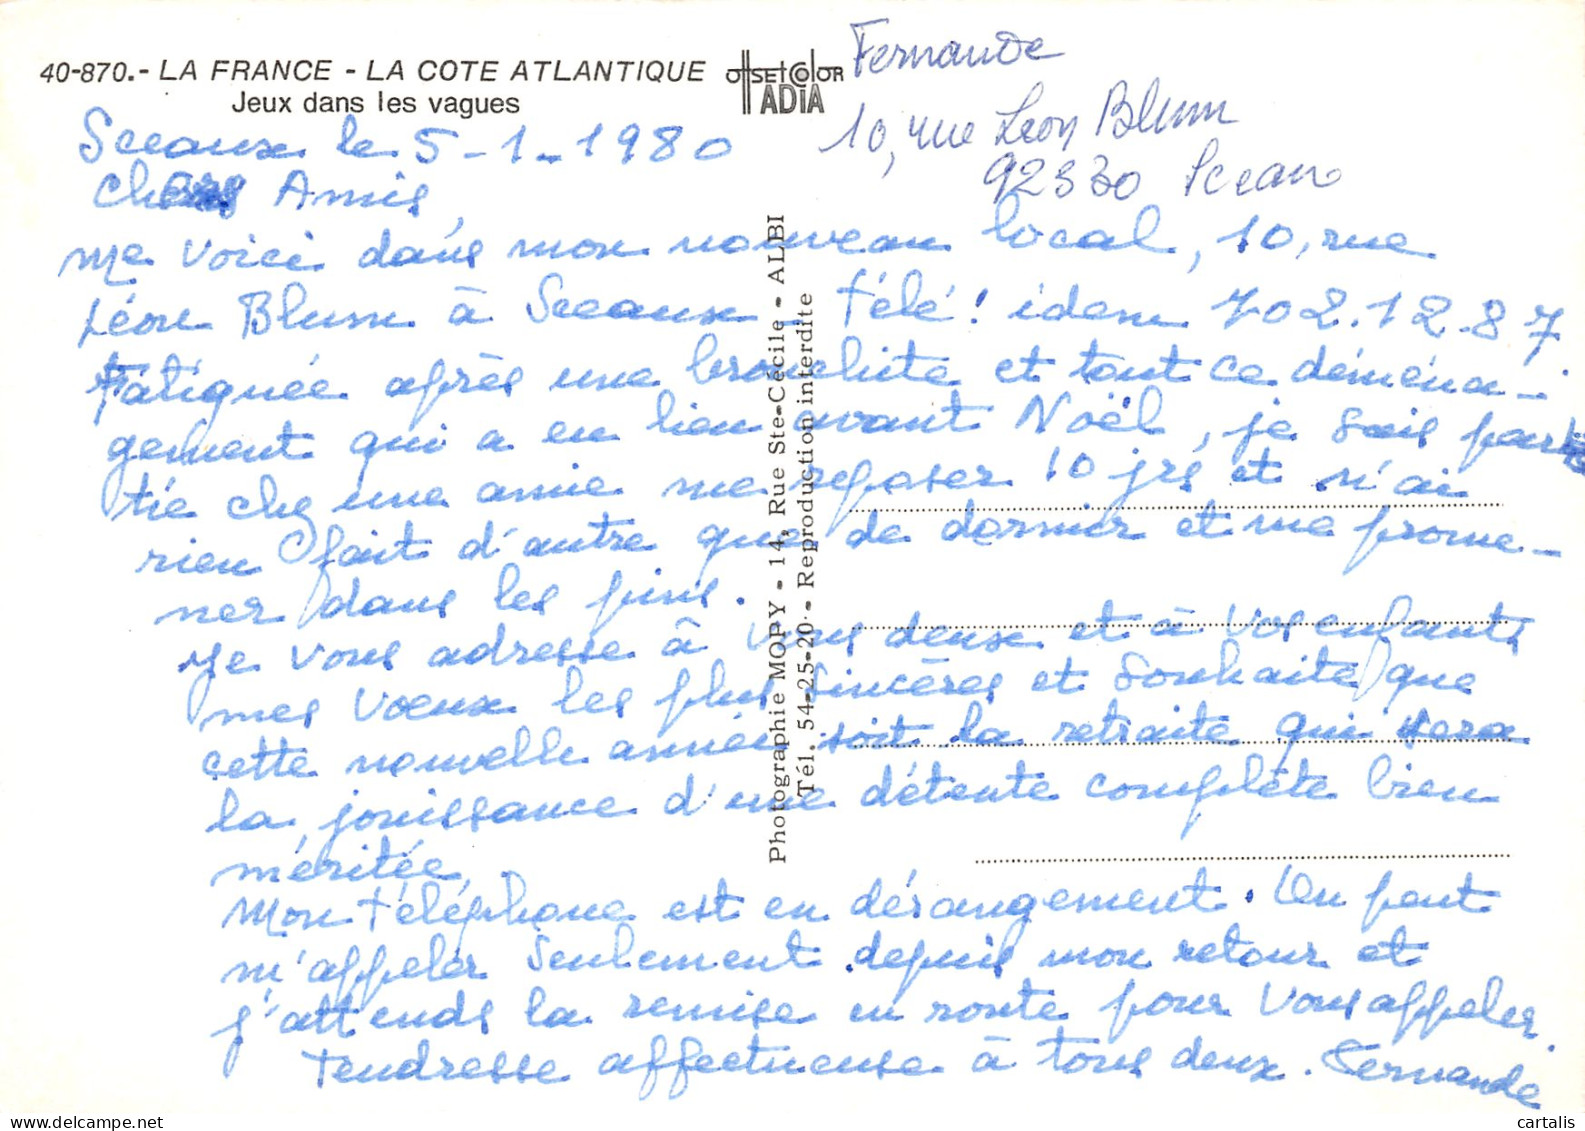 40-870.- LA FRANCE - LA COTE ATLANTIQUE
Jeux dans les vagues
OFFSETCOLOR
ADIA
Fernande
10, rue Léon Blum
92330 Sceaux
Sceaux le 5-1-1980
Chers Amis,
me voici dans mon nouveau local, 10, rue
Léon Blum à Sceaux - télé! idem 702.12.87.
Fatiguée après une bronchite et tout ce déména-
gement qui a eu lieu avant Noël, je suis par
tie chez une amie me reposer 10 jrs et n'ai
rien fait d'autre que de dormir et me prome-
ner dans les pins.
Je vous adresse à vous deux et à vos enfants
mes voeux les plus sincères et souhaite que
cette nouvelle année soit la retraite qui sera
la jouissance d'une détente complète bien
méritée.
Mon téléphone est en dérangement. On peut
m'appeler seulement depuis mon retour et
j'attends la remise en route pour vous appeler.
Tendresse affectueuse à tous deux. Fernande
Photographie MOPY - 14, Rue Ste-Cécile - ALBI
Tél. 54-25-20 - Reproduction interdite
cartalis